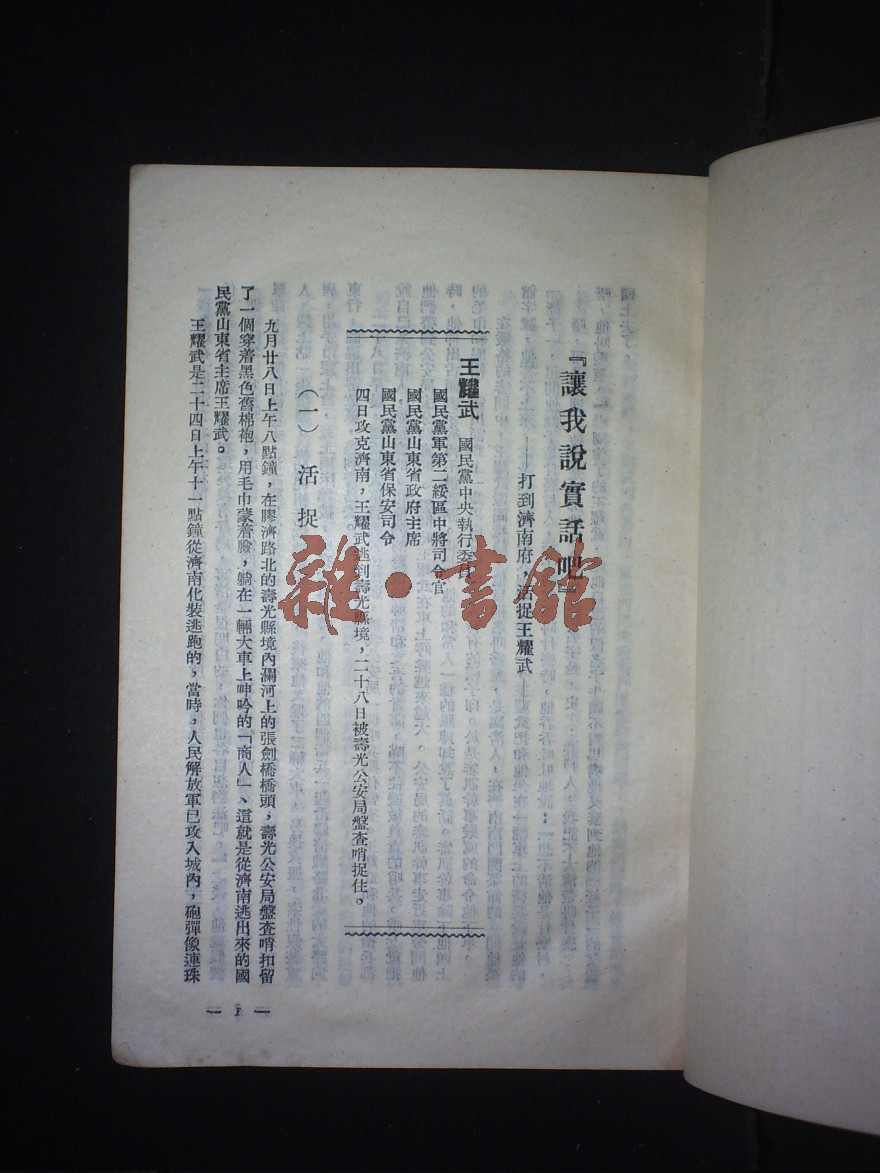 『讓我說實話吧』
打到濟南府,活捉王耀武
王耀武 國民黨中央執行委員
國民黨軍第二綏區中將司令官
國民黨山東省政府主席
國民黨山東省保安司令
四日攻克濟南,王耀武逃到壽光縣境,二十八日被壽光公安局盤查哨捉住。
(一) 活捉
九月廿八日上午八點鐘,在膠濟路北的壽光縣境內瀰河上的張劍橋橋頭,壽光公安局盤查哨扣留
了一個穿着黑色舊棉袍,用毛巾蒙着臉,躺在一輛大車上呻吟的「商人」、這就是從濟南逃出來的國
民黨山東省主席王耀武。
王耀武是二十四日上午十一點鐘從濟南化裝逃跑的,當時,人民解放軍已攻入城內,砲彈像連珠
— 1 —
雜·書館